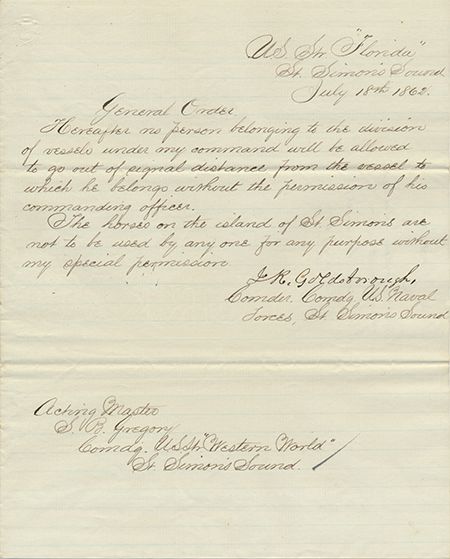 U.S. Str. "Florida"
St. Simon's Sound
July 18th 1862.
General Order
Hereafter no person belonging to the division
of vessels under my command will be allowed
to go out of signal distance from the vessel to
which he belongs without the permission of his
commanding officer.
The horses on the island of St. Simons are
not to be used by any one for any purpose without
my special permission
J. R. Goldsborough,
Comder. Comdg. U.S. Naval
Forces, St. Simon's Sound
Acting Master
S. B. Gregory
Comdg. U.S. Str. "Western World"
St. Simon's Sound.